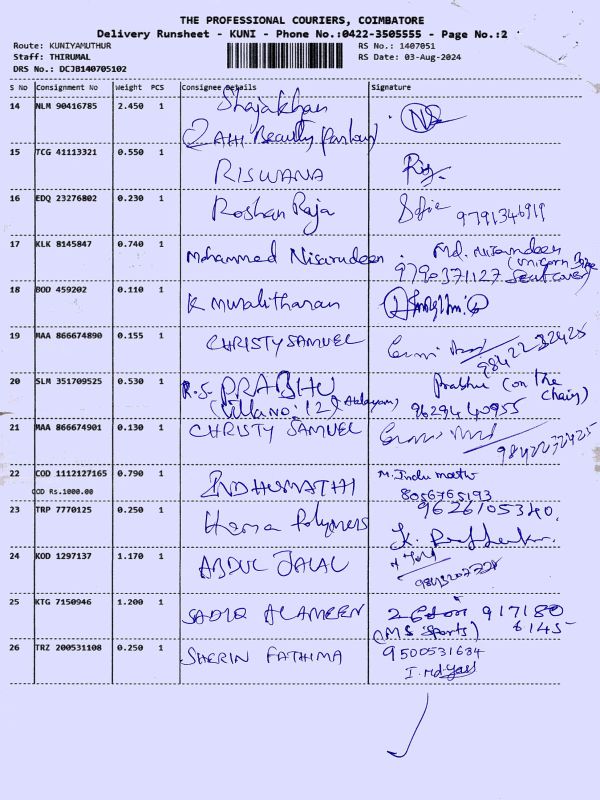 THE PROFESSIONAL COURIERS, COIMBATORE
Delivery Runsheet - KUNI - Phone No.:0422-3505555 - Page No.:2
Route: KUNIYAMUTHUR
RS No.: 1407051
Staff: THIRUMAL
RS Date: 03-Aug-2024
DRS No.: DCJB140705102
S No Consignment No Weight PCS Consignee Details Signature
14 NLM 90416785 2.450 1 Shajakhan
Beauty Parlour
15 TCG 41113321 0.550 1 RISWANA
16 EDQ 23276802 0.230 1 Roshan Raja Sofia 9791346919
17 KLK 8145847 0.740 1 Mohammed Nisarudeen Md. Nisarudeen
9790371127 Seat cover)
18 BOD 459202 0.110 1 K Muralitharan
19 MAA 866674890 0.155 1 CHRISTY SAMUEL
9842232425
20 SLM 351709525 0.530 1 R.S. PRABHU Prabhu (on the chair)
(Villa no: 12) 9629440955
21 MAA 866674901 0.130 1 CHRISTY SAMUEL
9842232425
22 COD 1112127165 0.790 1 INDHUMATHI M. Indu mathi
COD Rs.1000.00 8056765193
23 TRP 7770125 0.250 1 Hema Polymers 9626105340.
24 KOD 1297137 1.170 1 ABDUL JALAL
25 KTG 7150946 1.200 1 SADIQ ALAMEEN 917180
(MS Sports) 6145
26 TRZ 200531108 0.250 1 SHERIN FATHIMA 9500531634